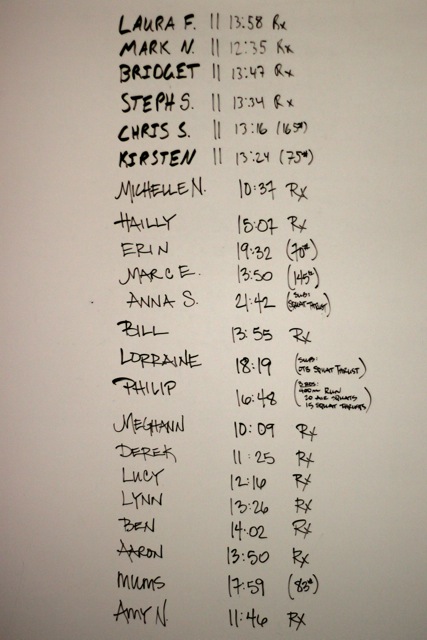 LAURA F. || 13:58 Rx
MARK N. || 12:35 Rx
BRIDGET || 13:47 Rx
STEPH S. || 13:34 Rx
CHRIS S. || 13:16 (165#)
KIRSTEN || 13:24 (75#)
MICHELLE N. 10:37 Rx
HAILLY 15:07 Rx
ERIN 19:32 (70#)
MARC E. 13:50 (145#)
ANNA S. 21:42 (SUB: SQUAT THRUST)
BILL 13:55 Rx
LORRAINE 18:19 (SUB: OTB SQUAT THRUST)
PHILIP 16:48 (3 RDS: 400m RUN
20 AIR SQUATS
15 SQUAT THRUSTS)
MEGHANN 10:09 Rx
DEREK 11:25 Rx
LUCY 12:16 Rx
LYNN 13:26 Rx
BEN 14:02 Rx
AARON 13:50 Rx
MUMS 17:59 (83#)
AMY N. 11:46 Rx